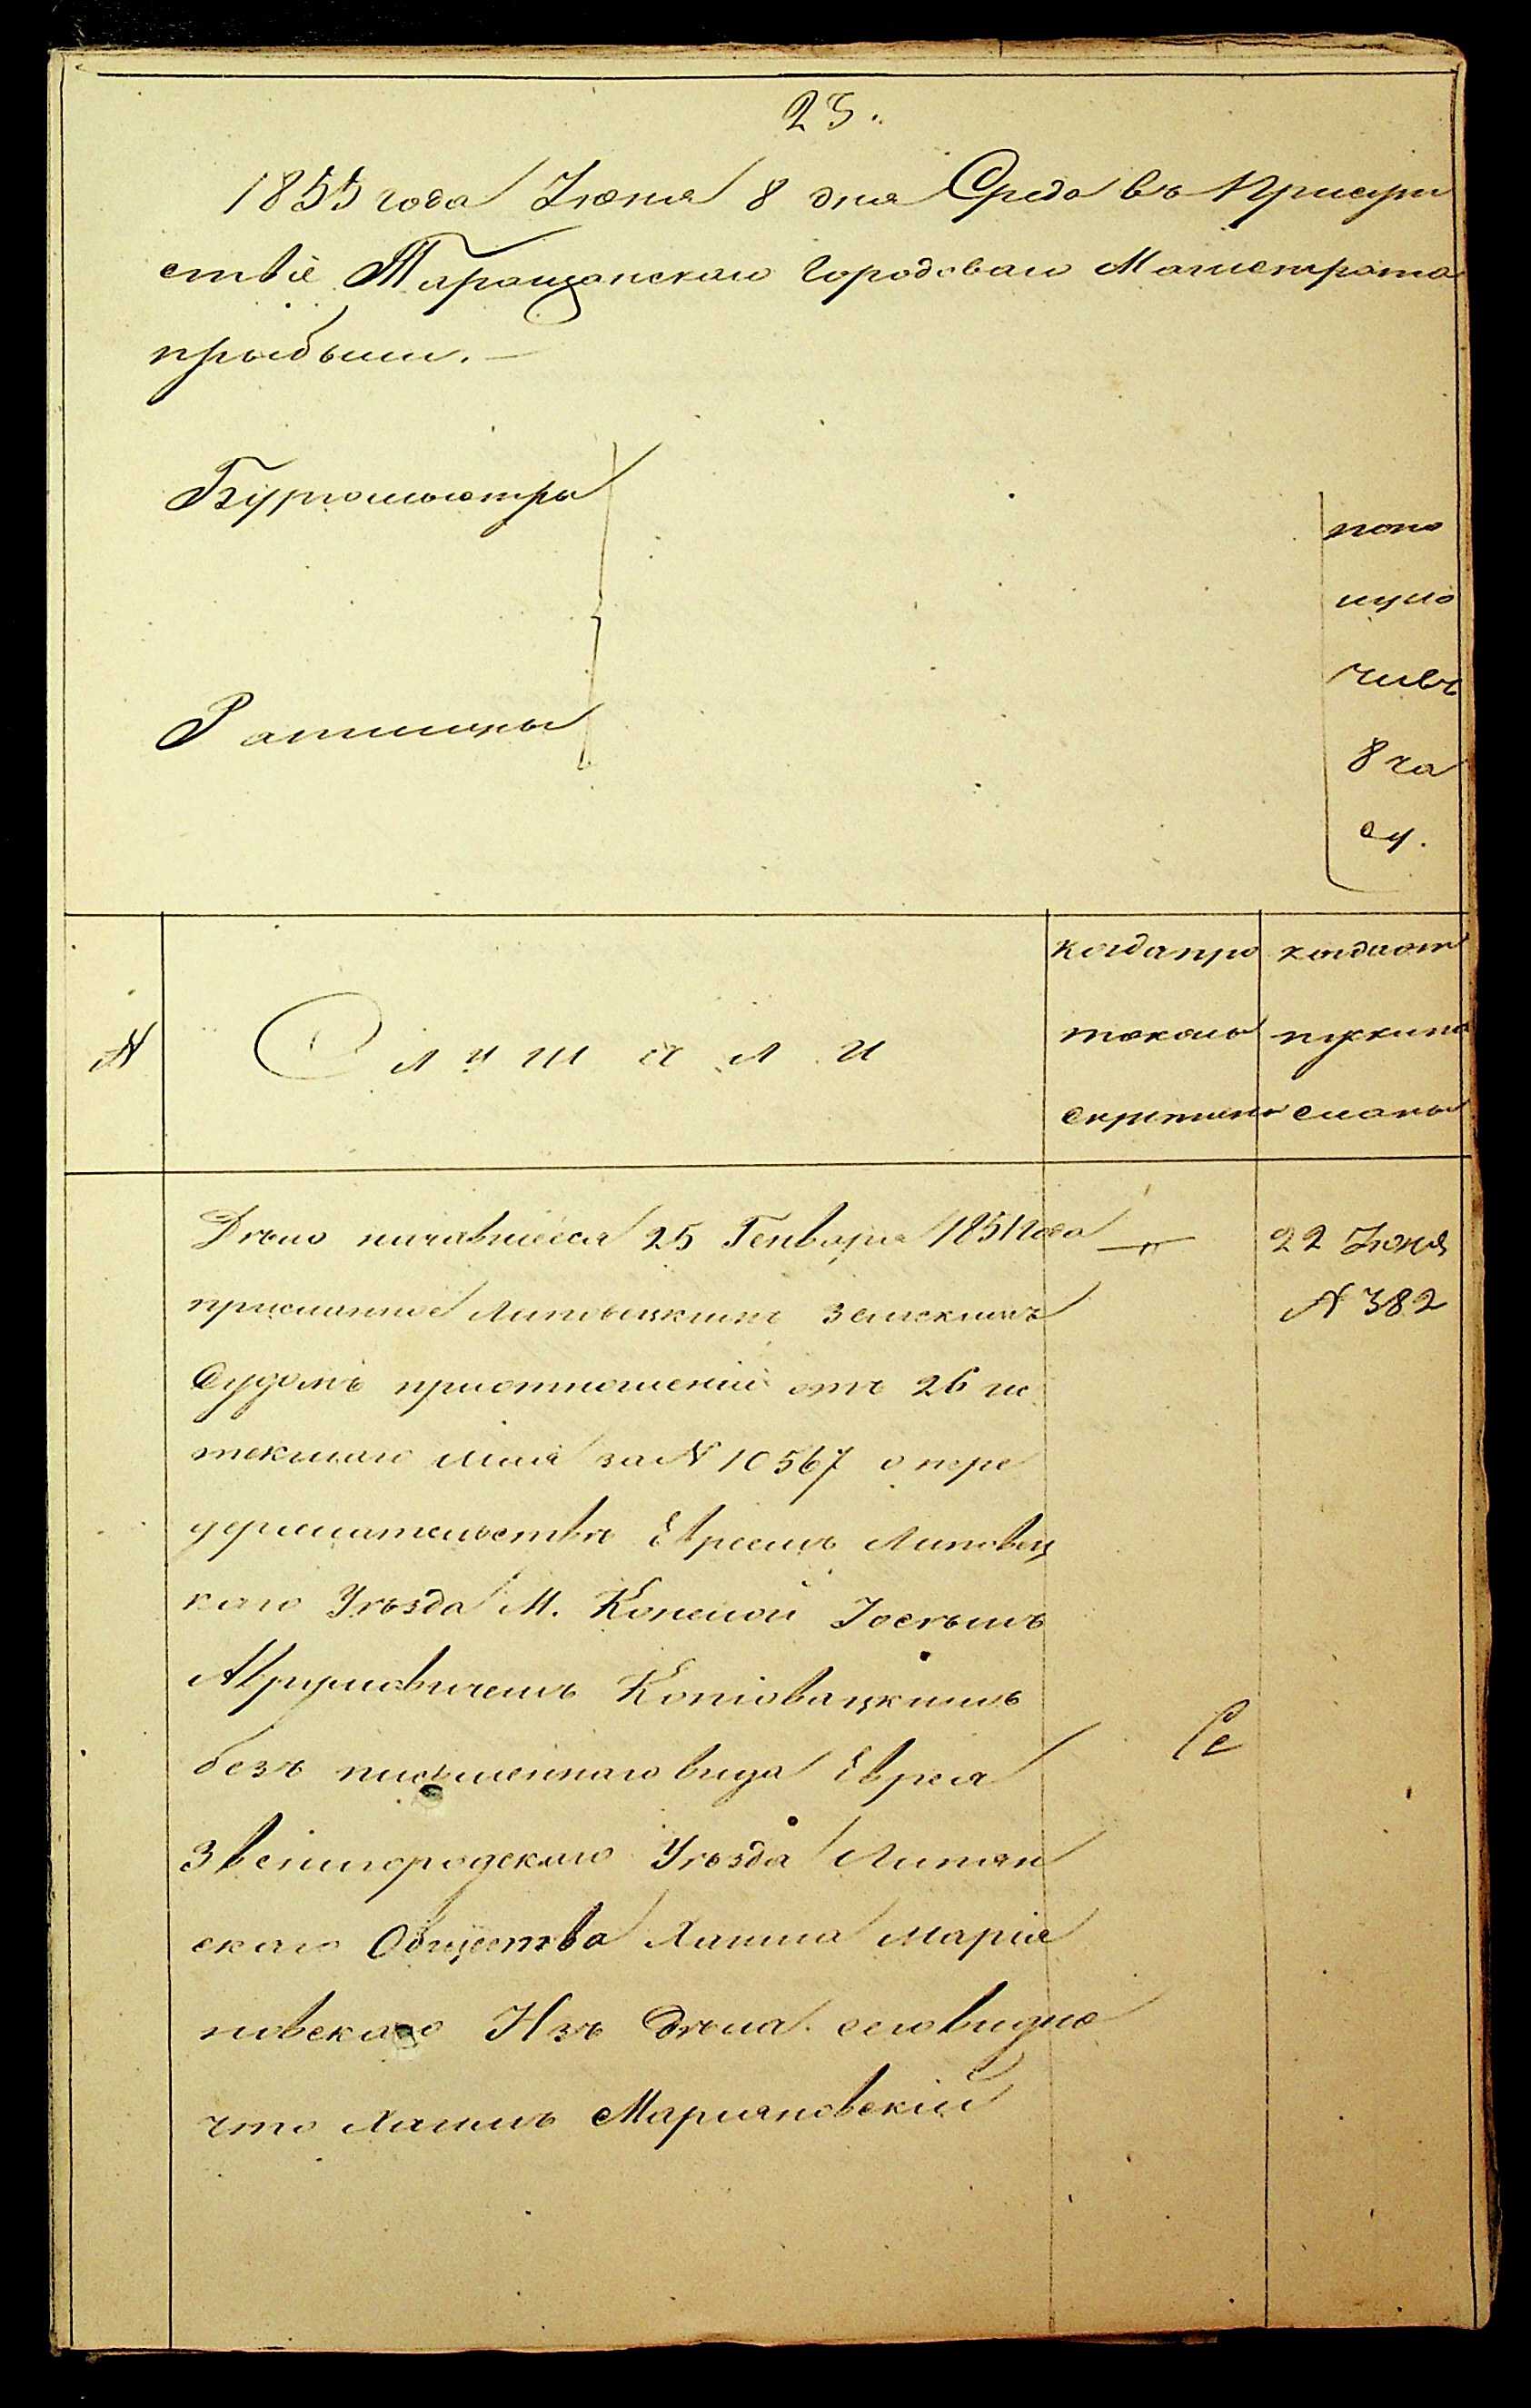 23.
1855 года Іюня 8 дня Среда въ Присут
ствіе Таращанскаго Городоваго Магистрата
прибыли.
Бургомистры
Ратманы
попо
лудо
чивъ
8 ча
су.
№
Слушали
когда про
токолъ
скрепленъ
когда от
пускипо
сланы
Дѣло начавшееся 25 Генваря 1851 года
присланное Липовецкимъ Земскимъ
Судомъ приотношеніи отъ 26 ис
текшаго Мая за № 10567 о пере
держательствѣ Евреемъ Липовец
каго Уѣзда М. Конелой Іоськомъ
Аврумовичемъ Копіовацкимъ
безъ письменнаго вида Еврея
Звенигородскаго Уѣзда Лисян
скаго Общества Хаима Марія
новскаго Изъ дѣла сего видно
что Хаимъ Марияновскій
22 Іюня
№ 382